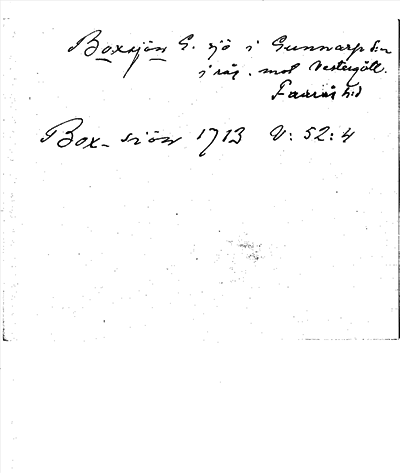 Boxsjön G. sjö i Gunnarp sn
i rås. mot Vestergötl.
Faurås hd
Box-siön 1713 V: 52: 4